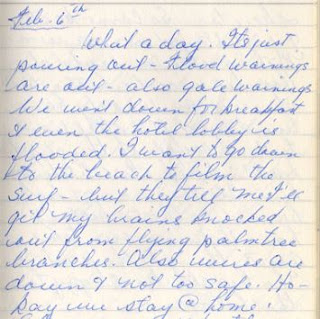 Feb. 6th
What a day. Its just
pouring out - Flood warnings
are out - also gale warnings
We went down for breakfast
& even the hotel lobby is
flooded. I want to go down
to the beach to film the
surf - but they tell me I'll
git my brains knocked
out from flying palmtree
branches. Also wires are
down & not too safe. Ho-
Day we stay @ home!